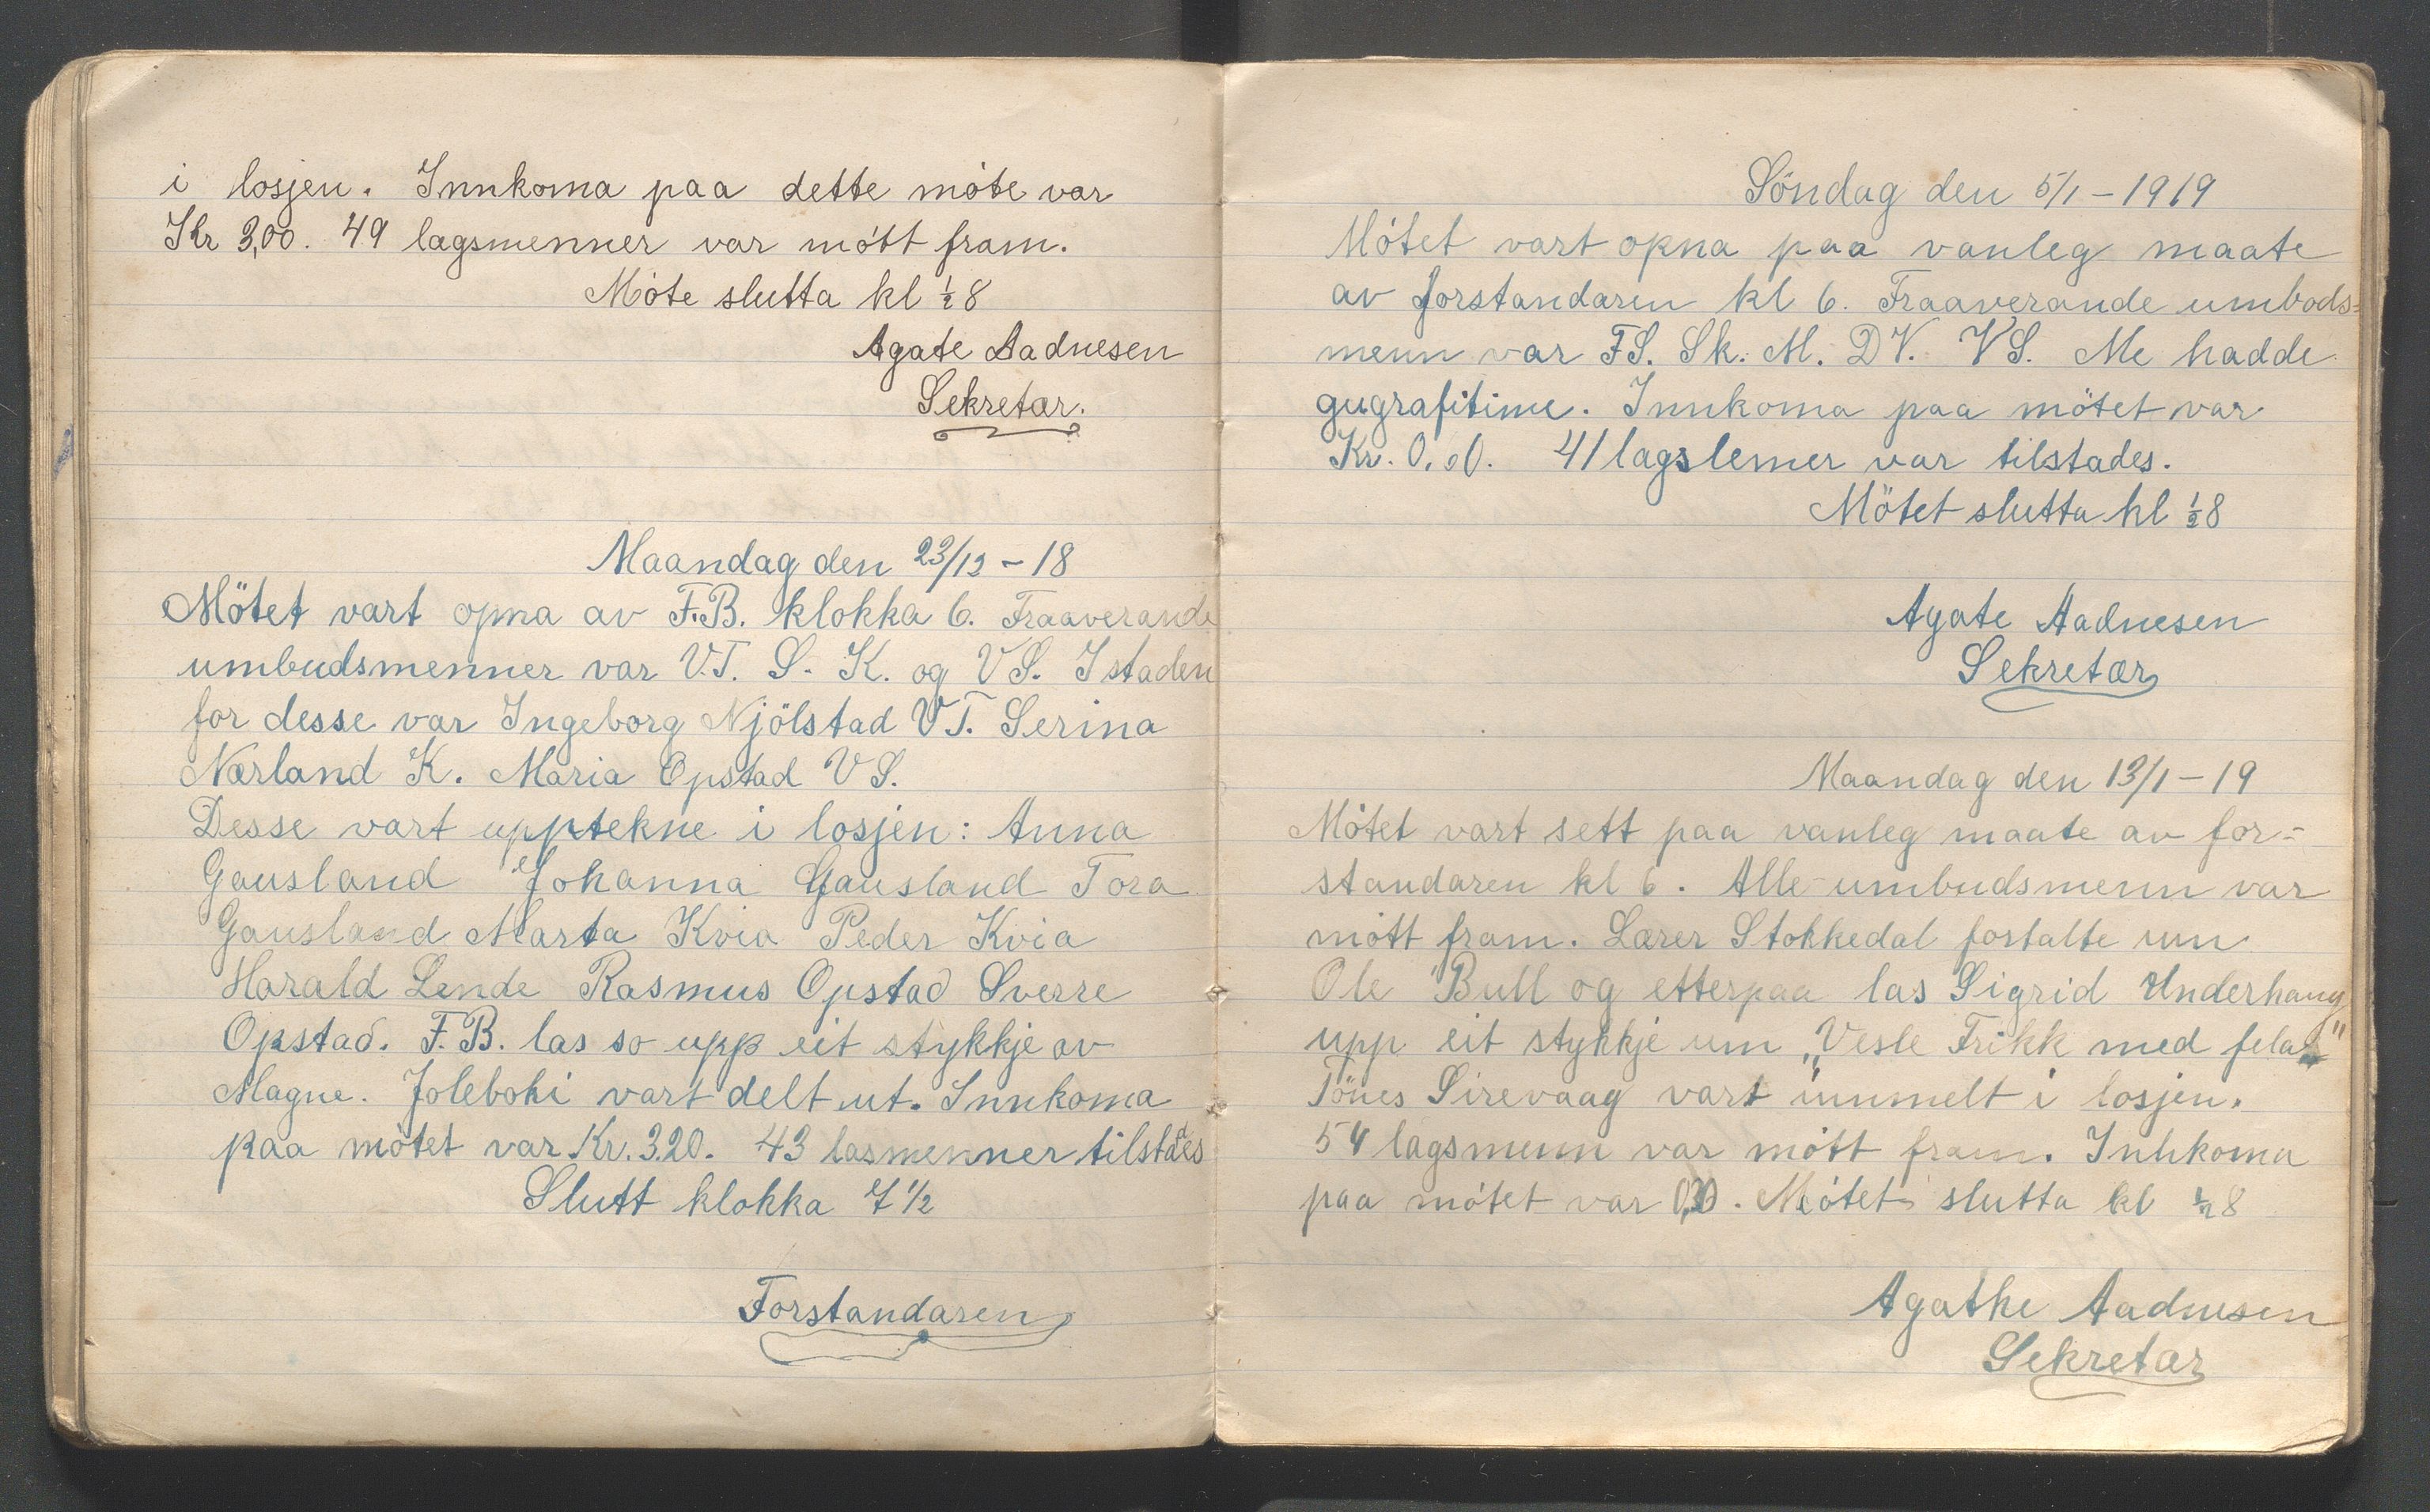 i losjen. Innkoma paa dette móte var
Kr 3,00. 49 lagsmenner var mótt fram.
Móte slutta kl ½ 8
Agate Aadnesen
Sekretær.
Maandag den 23/12 - 18
Mötet vart opna av F.B. klokka 6. Fraaverande
umbudsmenner var V.T. S. K. og V S. I staden
for desse var Ingeborg Njölstad V T. Serina
Nærland K. Maria Opstad V S.
Desse vart upptekne i losjen: Anna
Gausland Johanna Gausland Tora
Gausland Marta Kvia Peder Kvia
Harald Lende Rasmus Opstad Sverre
Opstad. F. B. las so upp eit stykkje av
Magne. Joleboki vart delt ut. Innkoma
paa mötet var Kr. 3.20. 43 lasmenner tilstades
Slutt klokka 7 ½
Forstandaren
Söndag den 5/1 - 1919
Mótet vart opna paa vanleg maate
av forstandaren kl 6. Fraaverande umbods=
menn var FS. Sk. M. D V. V S. Me hadde
gugrafitime. Innkoma paa mötet var
Kr. 0.00. 41 lagslemer var tilstades.
Mötet slutta kl ½ 8
Agate Aadnesen
Sekretær
Maandag den 13/1 - 19
Mótet vart sett paa vanleg maate av for=
standaren kl 6. Alle umbudsmenn var
mótt fram. Lærer Stokkedal fortalte um
Ole Bull og etterpaa las Sigrid Underhaug
upp eit stykkje um „Vesle Frikk med fela"
Tönes Sirevaag vart innmelt i losjen.
54 lagsmenn var mótt fram. Innkoma
paa mótet var 0,30. Mótet slutta kl ½ 8
Agathe Aadnesen
Sekretær